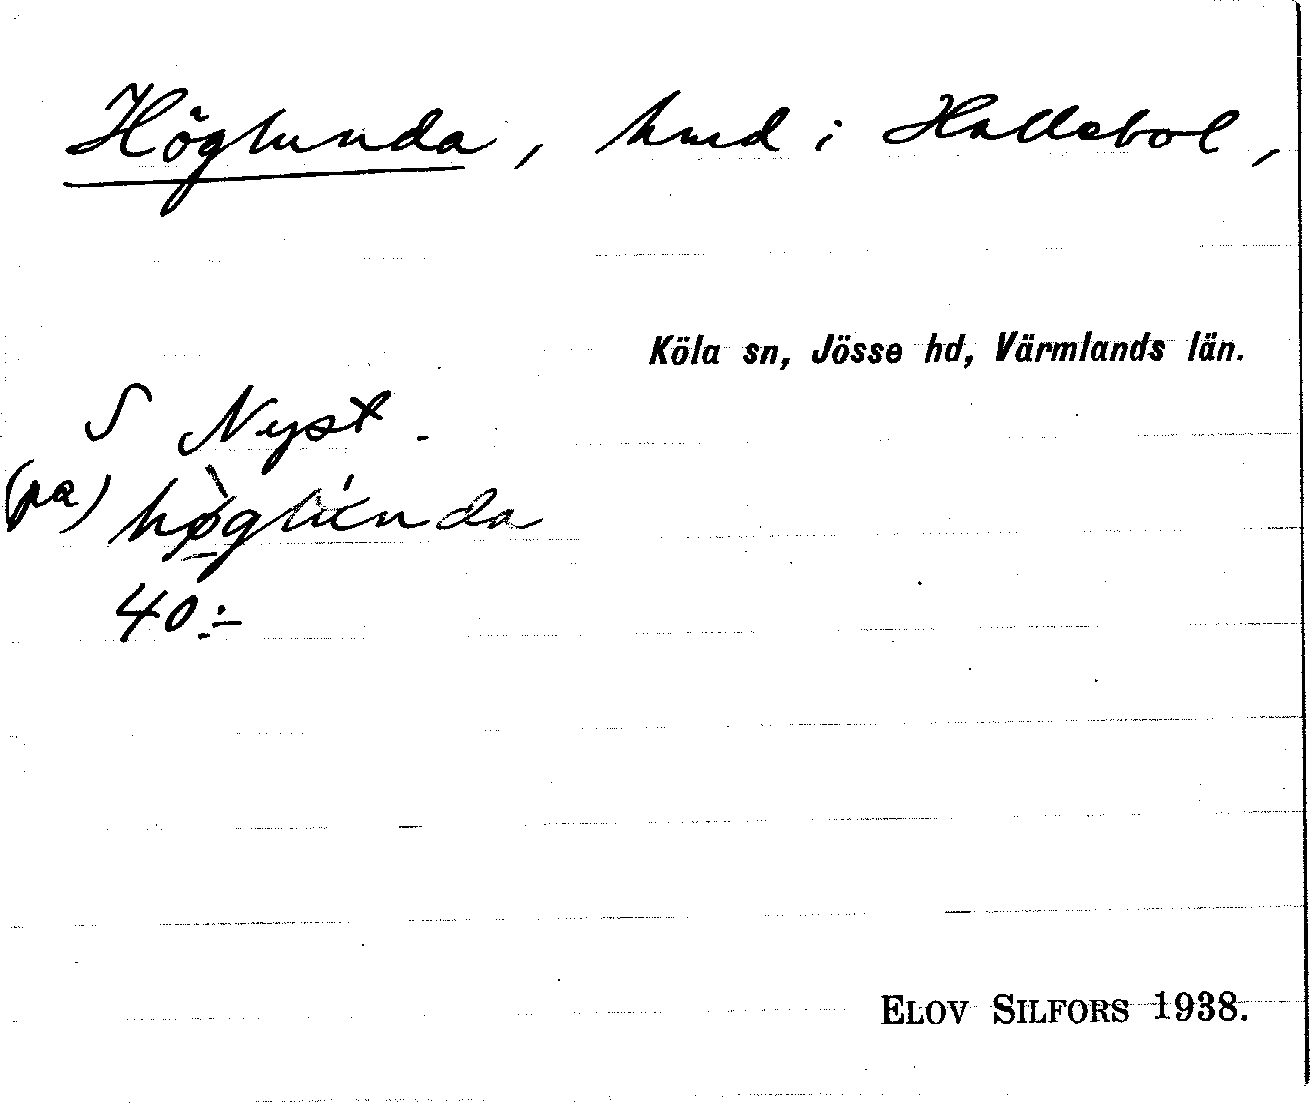 Höglunda, hmd i Hallebol,
Köla sn, Jösse hd, Värmlands län.
S Nyst.
(pa) hø̀glúnda
40:-
ELOV SILFORS 1938.